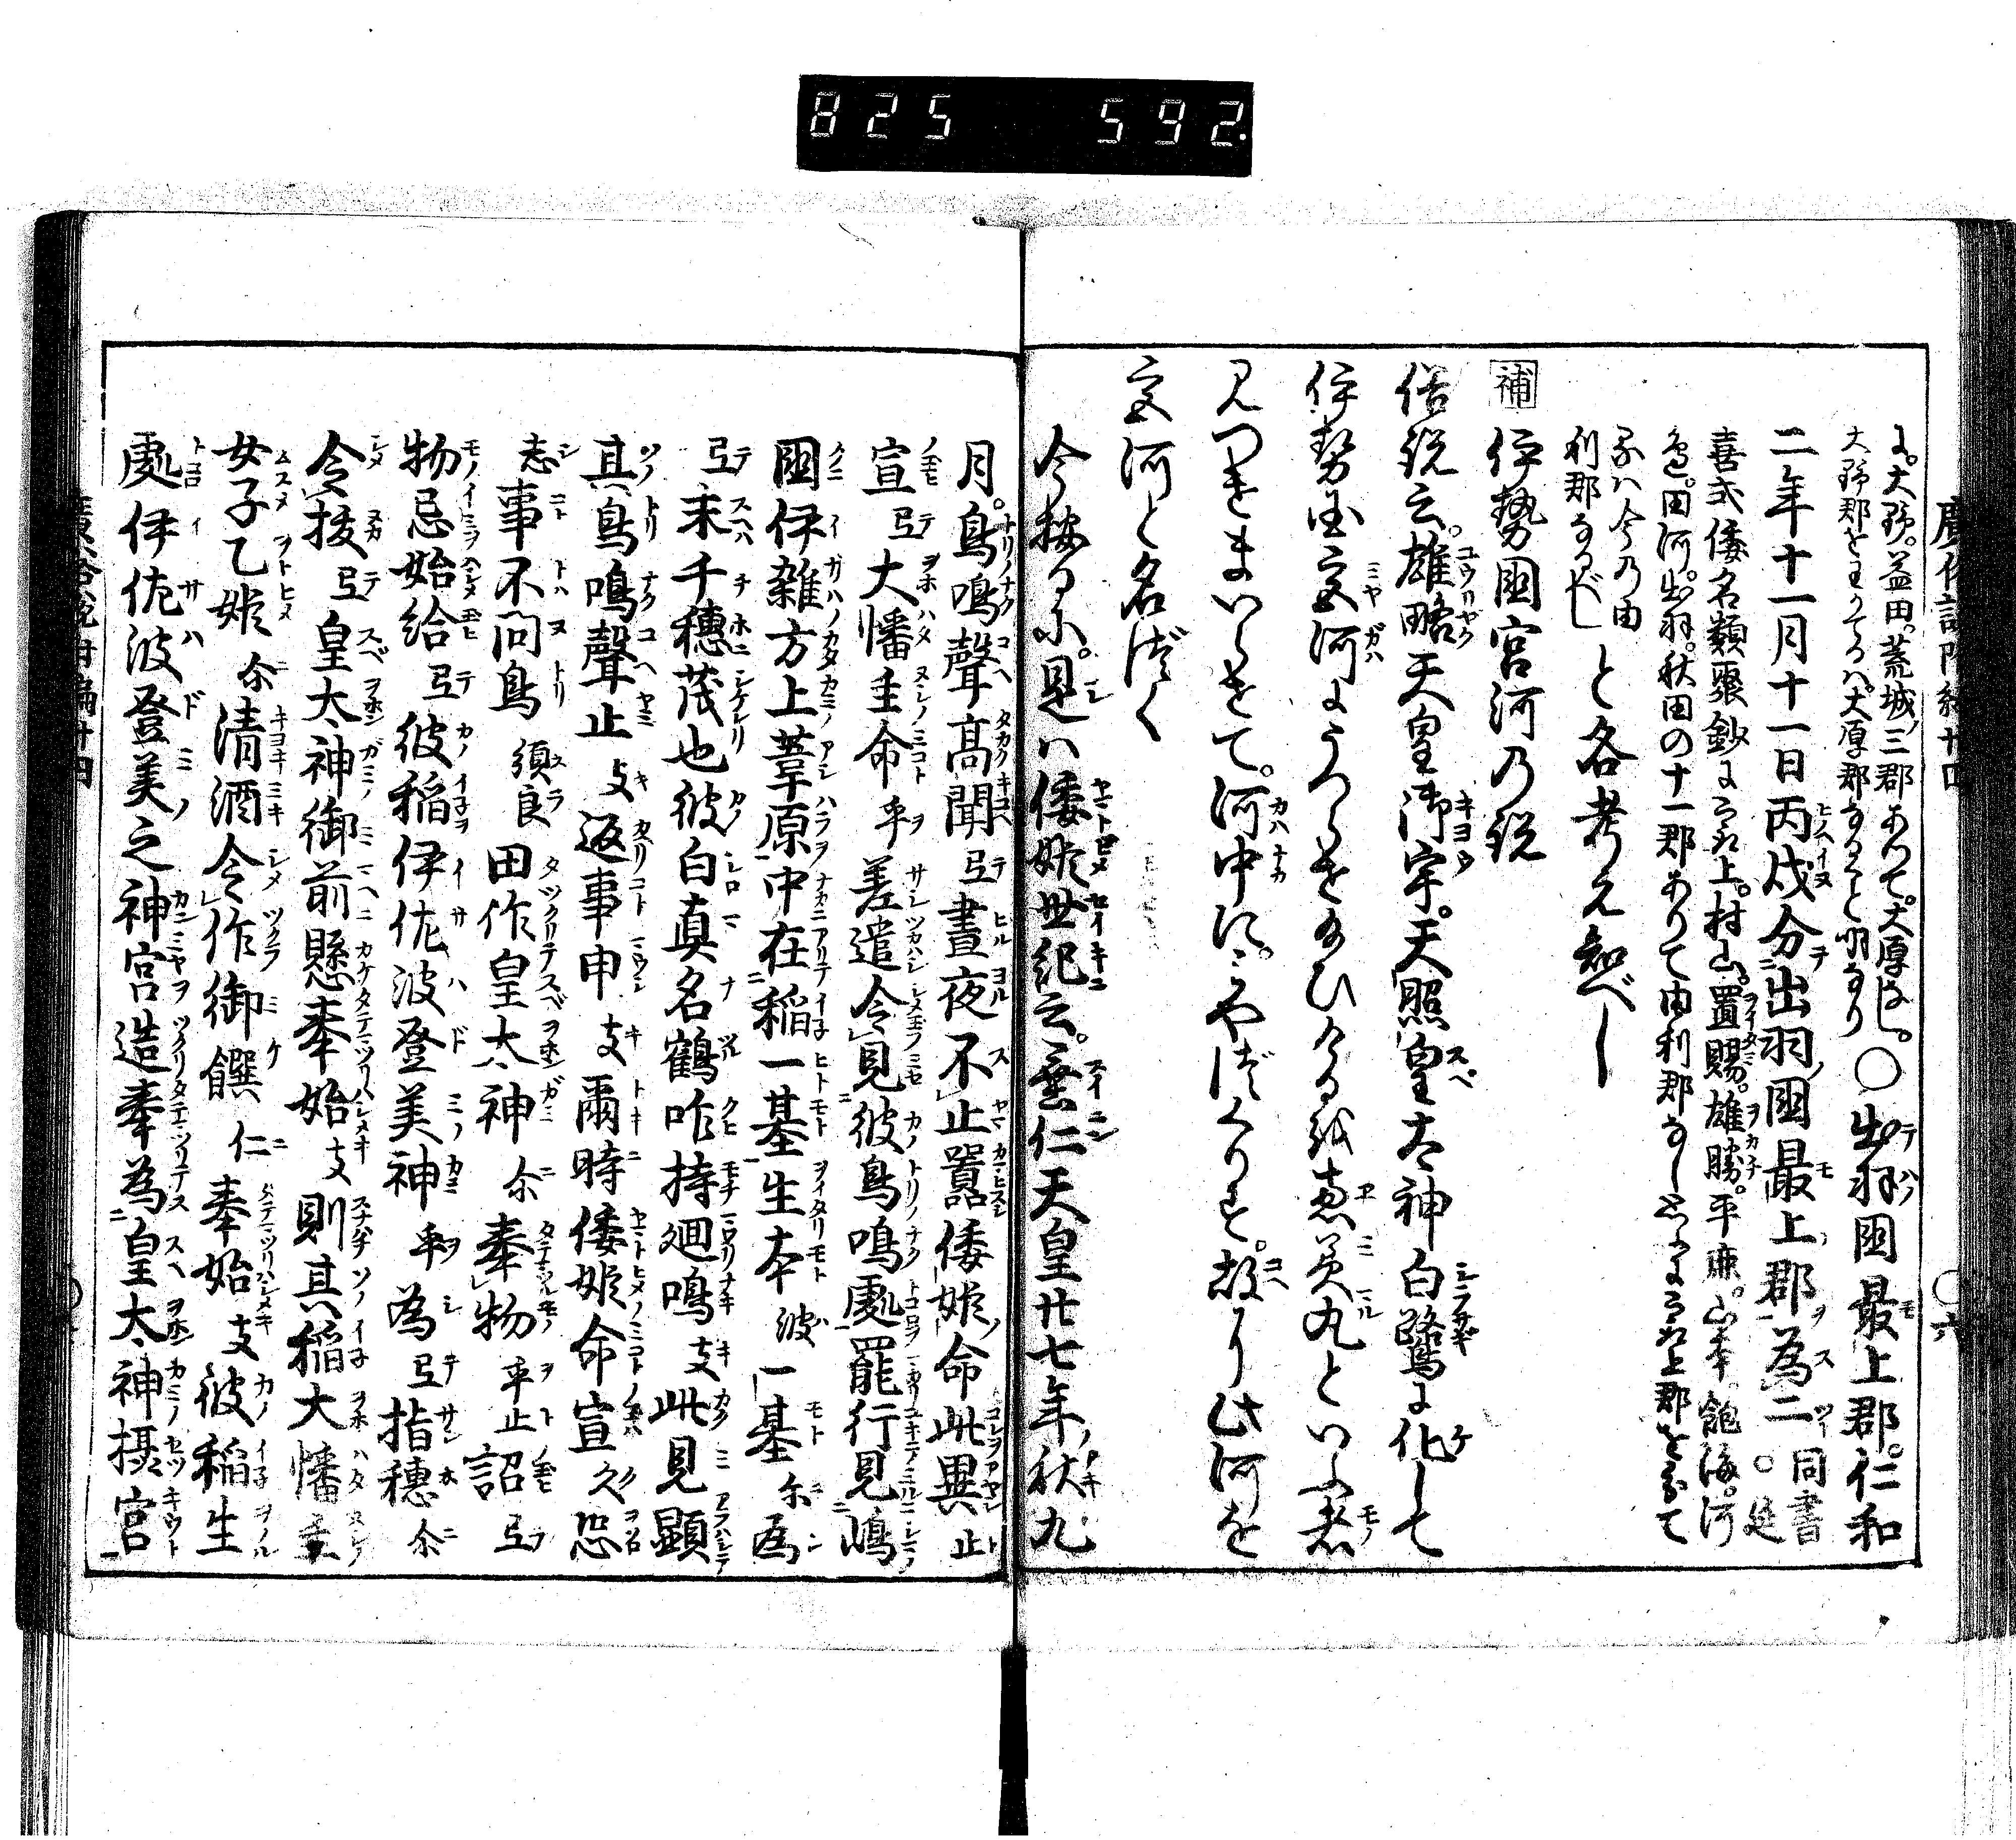 825 592
に。大野。益田。葢城ノ三郡ありて。大原なし。
大野郡とわかてるハ大原郡なること明なり
○出羽國最上郡。仁和
二年十一月十一日丙戌分出羽國最上郡為二
同書○延
喜式倭名類聚鈔に最上。村山。置賜。雄勝。平鹿。山本。飽海。河
邊。田河。出羽。秋田の十一郡ありて由利郡なし
ハ今乃由
利郡なるべし
と各考え知べし
補 伊勢國宮河乃説
俗説云。雄略天皇御宇。天照皇太神白鷺に化して
伊勢国宮河にうつらせ給ひけるを恵美丸といふ者
見つけまいらせて。河中に。みやづくりす。故に此河を
宮河と名づく
今按るに。是ハ倭姫世紀云。垂仁天皇廿七年ノ秋九
月。鳥鳴聲高聞弖晝夜不止囂倭姫命此異止
宣弖大幡主命乎差遣令見彼鳥鳴處罷行見嶋
國伊雜方上葦原中在稲一基生本波一基尓為
弖末千穗茂也彼白眞名鶴咋持廻鳴支此見顯
其鳥鳴聲止支返事申支爾時倭姫命宣久恐
志事不問鳥須良田作皇太神尓奉物乎止詔弖
物忌始給弖彼稲伊佐波登美神乎為弖指穗尓
令抜弖皇太神御前懸奉始支則其稲大幡主
女子乙姫尓清酒令作御饌仁奉始支彼稲生
處伊佐波登美之神宮造奉為皇太神攝宮